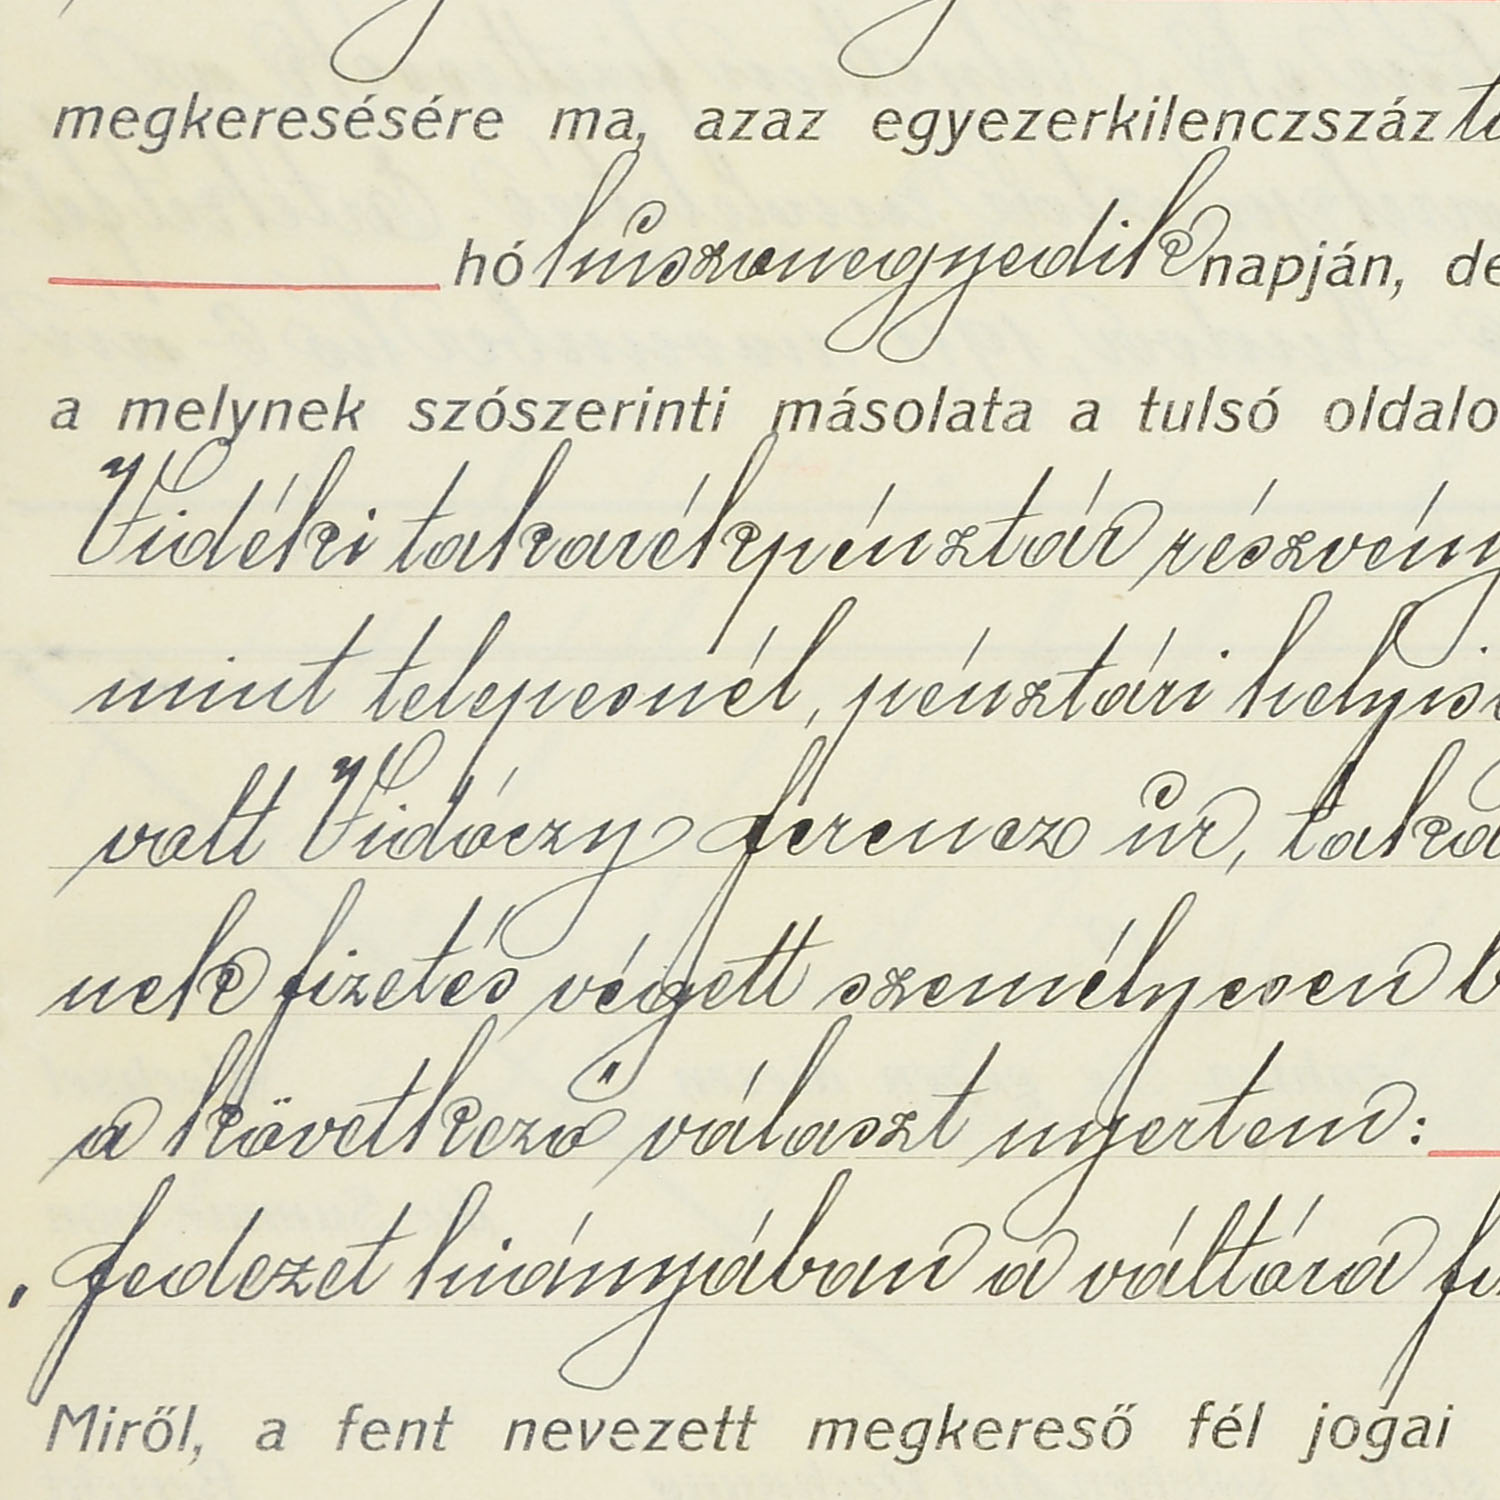 megkeresésére ma, azaz egyezerkilenczszáz
hó huszonegyedik napján, de
a melynek szószerinti másolata a tulsó oldalo
Vidéki takarékpénztár részvény
mint telepesnél, pénztári helyisé
volt Vidóczy Ferencz úr, taka
nek fizetés végett személyesen b
a következő választ nyertem:
„fedezet hiányában a váltóra fi
Miről, a fent nevezett megkereső fél jogai